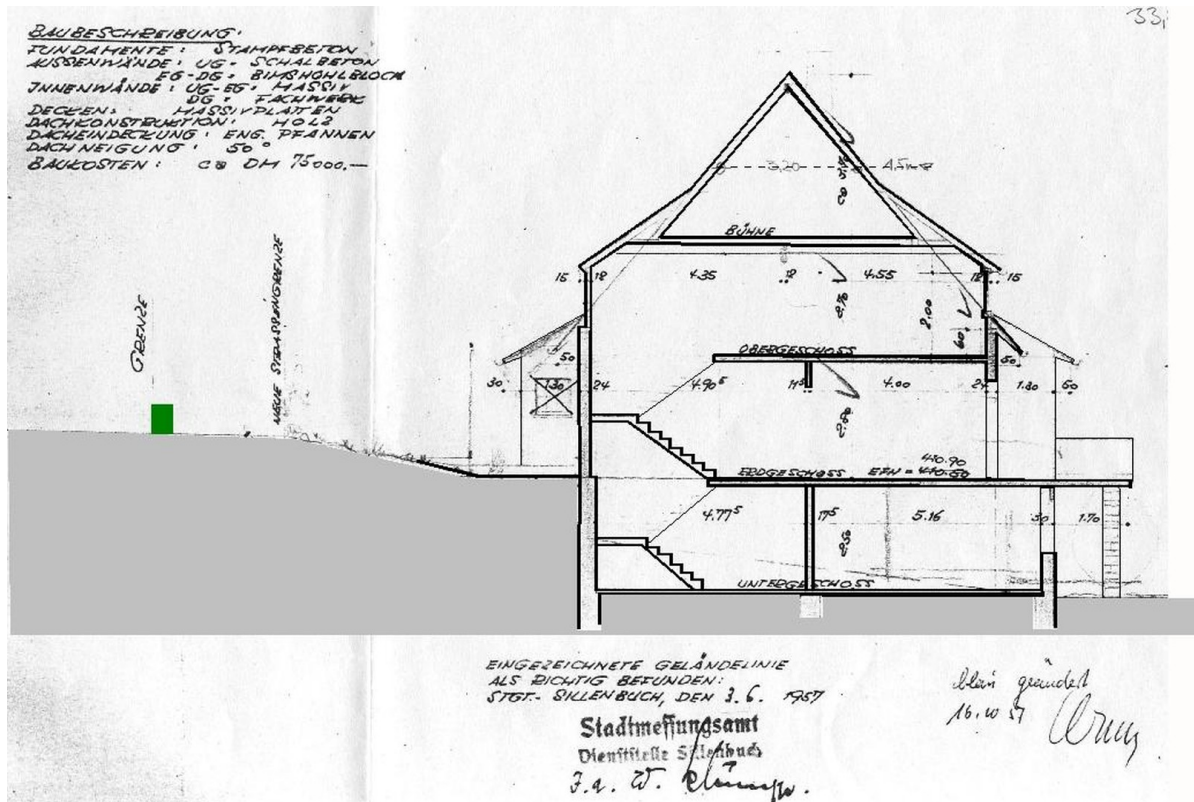 33,
BAUBESCHREIBUNG:
FUNDAMENTE: STAMPFBETON
AUSSENWÄNDE: UG = SCHALBETON
EG-DG = BIMSHOHLBLOCK
INNENWÄNDE: UG-EG = MASSIV
DG = FACHWERK
DECKEN: MASSIVPLATTEN
DACHKONSTRUKTION: HOLZ
DACHEINDECKUNG: ENG. PFANNEN
DACHNEIGUNG: 50°
BAUKOSTEN: ca DM 75000.—
GRENZE
NEUE STRASSENGRENZE
3,20
BÜHNE
15 18 4.35 12 4.55 18 15
2.00
60
OBERGESCHOSS
50 50
30 1.30 24 4.90⁵ 11⁵ 4.00 24 1.80 60
410.90
ERDGESCHOSS EFH = 410.50
4.77⁵ 17⁵ 5.16 30 1.70
UNTERGESCHOSS
EINGEZEICHNETE GELÄNDELINIE
ALS RICHTIG BEFUNDEN:
STGT.- SILLENBUCH, DEN 3.6. 1957
Stadtmessungsamt
Dienststelle Sillenbuch
J.a. W.
blau geändert
16.10 57